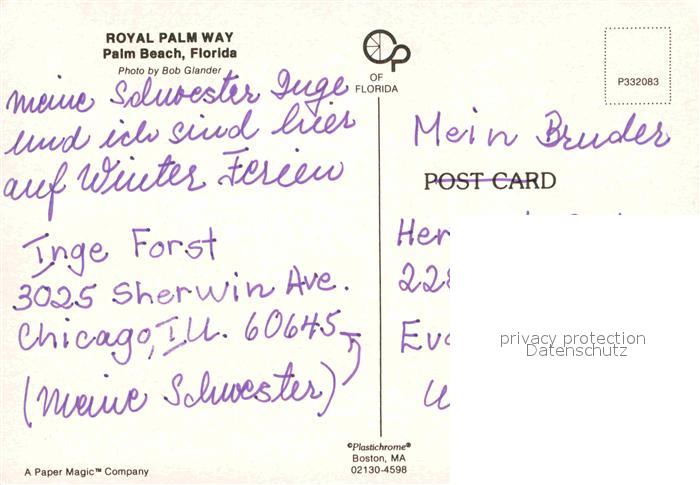 ROYAL PALM WAY
Palm Beach, Florida
Photo by Bob Glander
meine Schwester Inge
und ich sind hier
auf Winter Ferien
Inge Forst
3025 Sherwin Ave.
Chicago, Ill. 60645
(meine Schwester)
A Paper Magic™ Company
OF
FLORIDA
P332083
Mein Bruder
POST CARD
Her
22
Eva
U
privacy protection
Datenschutz
©Plastichrome®
Boston, MA
02130-4598